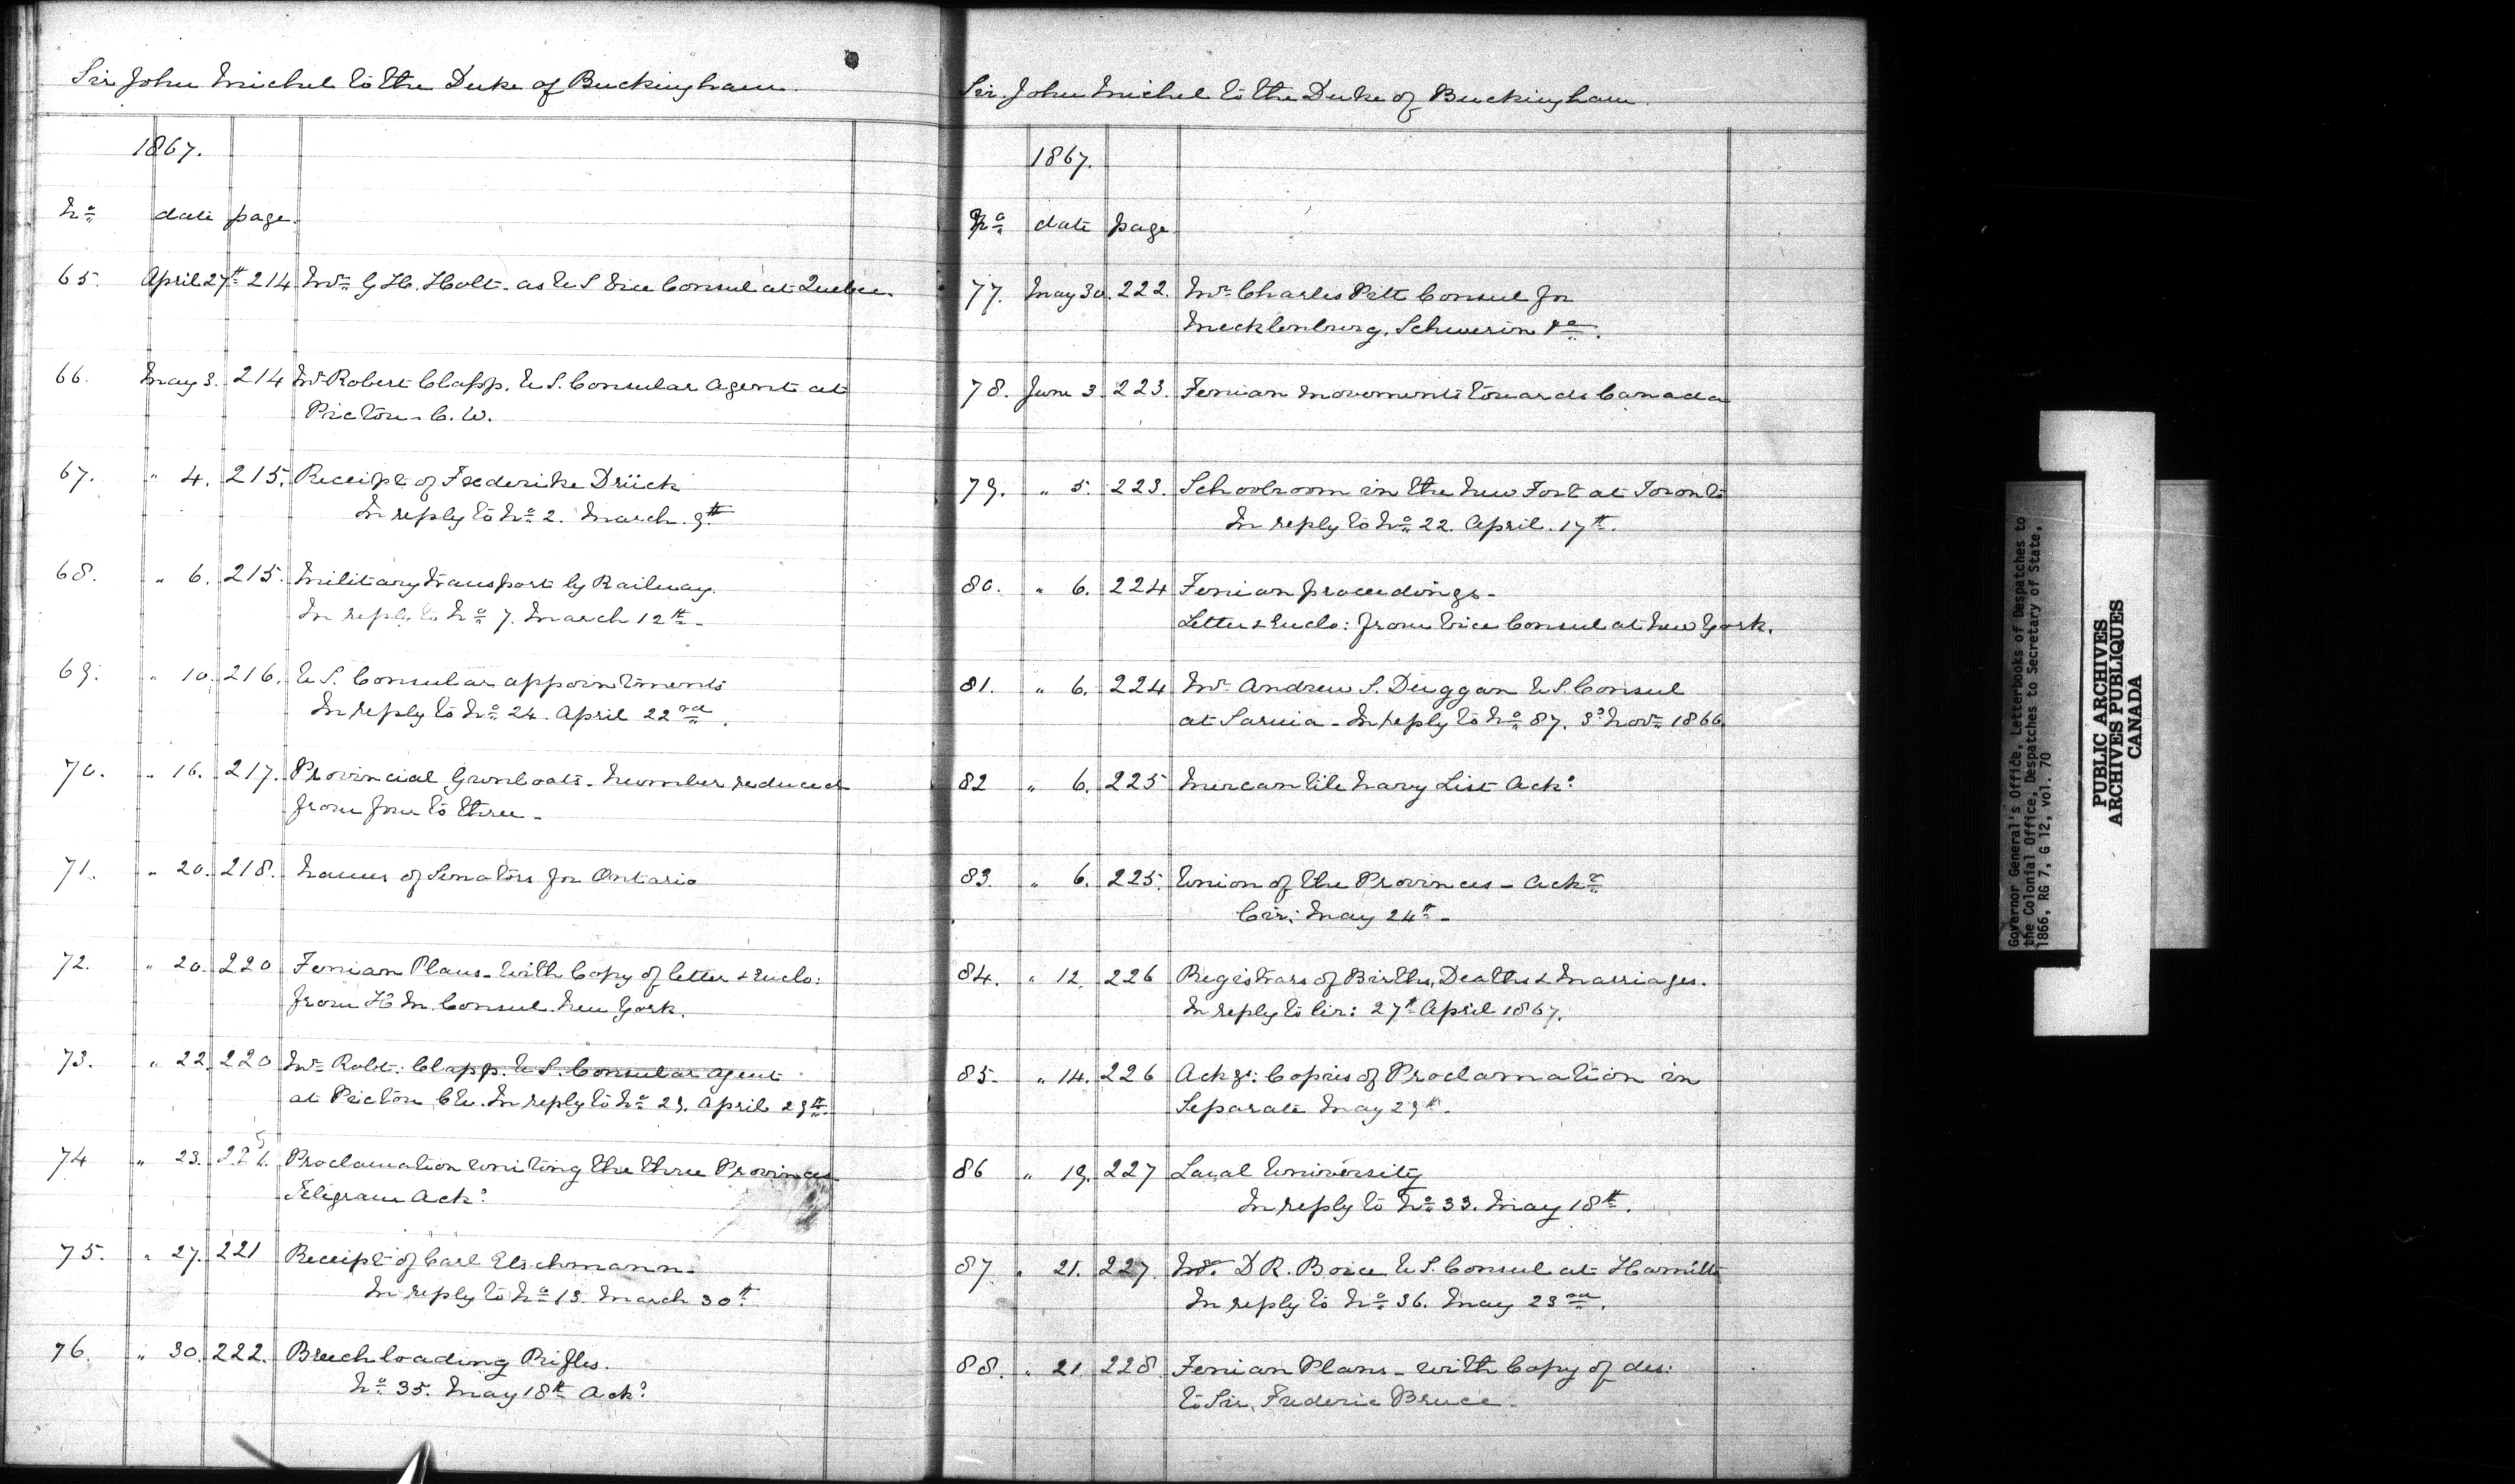 Sir John Michel to the Duke of Buckingham.
1867.
No date page.
65. April 27th 214 Mr G H. Holt. as U S Vice Consul at Quebec.
66. May 3. 214 Mr Robert Clapp. U. S. Consular Agent at
Picton. C. W.
67. " 4. 215. Receipt of Frederike Drück
In reply to No 2. March. 9th
68. " 6. 215. Military Transport by Railway.
In reply to No 7. March 12th
69. " 10. 216. U S. Consular appointments
In reply to No 24. April 22nd.
70. " 16. 217. Provincial Gunboats. Number reduced
from four to three.
71. " 20. 218. Names of Senators for Ontario
72. " 20. 220 Fenian Plans. With Copy of letter & Enclo:
from H M. Consul. New York.
73. " 22. 220 Mr Robt. Clapp. U. S. Consular Agent
at Picton CW. In reply to No 29. April 29th
74 " 23. Proclamation uniting the three Provinces
Telegram Ackd
75. " 27. 221 Receipt of Carl
In reply to No 13. March 30th
76. " 30. 222. Breech loading Rifles.
No 35. May 18th Ackd
Sir John Michel to the Duke of Buckingham.
1867.
No date page
77. May 30. 222. Mr Charles Pett Consul for
Mecklenburg. Schwerin &c.
78. June 3. 223. Fenian Movements towards Canada
79. " 5. 223. Schoolroom in the New Fort at Toronto
In reply to No 22. April. 17th.
80. " 6. 224 Fenian proceedings.
Letter & Enclo: from Vice Consul at New York.
81. " 6. 224 Mr Andrew S. Duggan U S. Consul
at Sarnia. In reply to No 87. 3d Novr 1866
82 " 6. 225 Mercantile Navy List Ackd
83. " 6. 225. Union of the Provinces. Ackg
Cir: May 24th.
84. " 12. 226 Registrars of Births, Deaths & Marriages.
In reply to Cir: 27th April 1867.
85. " 14. 226 Ackg: Copies of Proclamation in
Separate May 29th.
86 " 19. 227 Laval University
In reply to No 33. May 18th.
87 " 21. 227. Mr. D R. Boice U. S. Consul at Hamilton
In reply to No 36. May 23rd.
88. " 21. 228. Fenian Plans. with Copy of des:
to Sir. Frederic Bruce.
Governor General's Office, Letterbooks of Despatches to
the Colonial Office, Despatches to Secretary of State,
1866, RG 7, G 12, vol. 70
PUBLIC ARCHIVES
ARCHIVES PUBLIQUES
CANADA